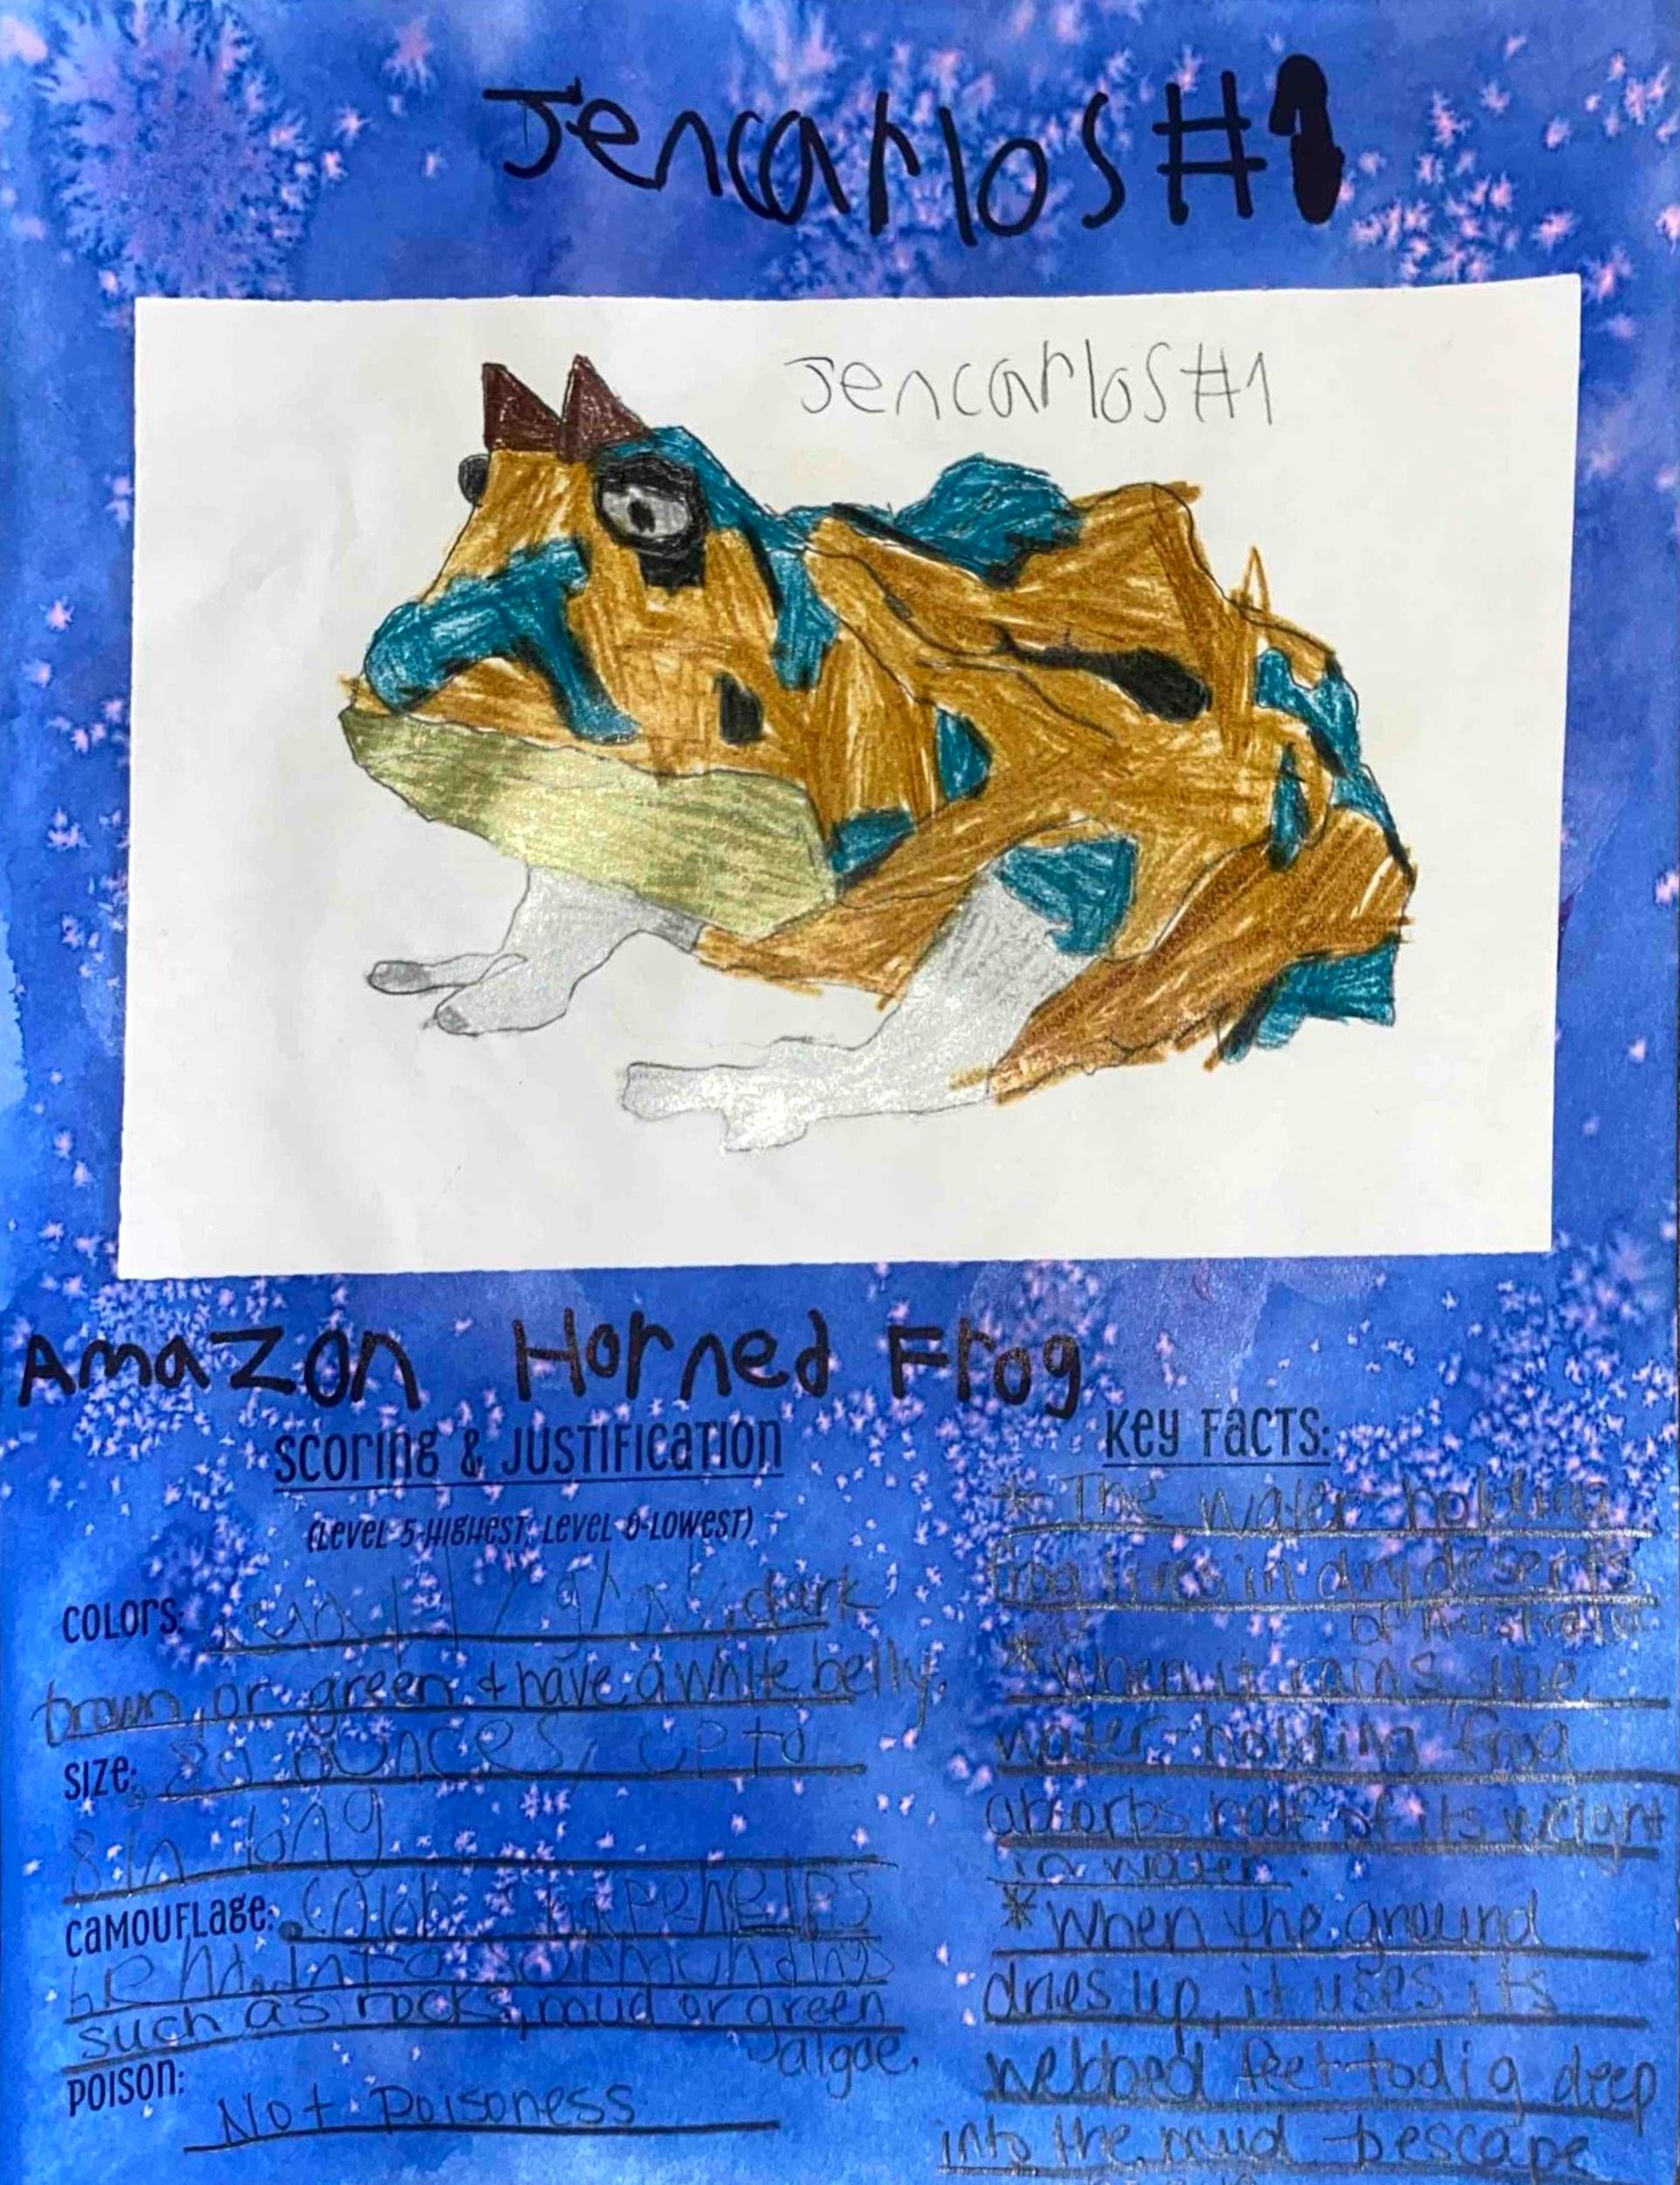 Jencarlos #1
Jencarlos #1
Amazon Horned Frog
SCORING & JUSTIFICATION
(LEVEL 5-HIGHEST, LEVEL 0-LOWEST)
COLORS: dark
brown, or green & have a white belly.
SIZE: ounces, up to
8 in long
CAMOUFLAGE: helps
blend into surroundings
such as rocks, mud or green
algae.
POISON:
Not Poisoness
KEY FACTS:
* The water holding
frog lives in dry deserts
of Australia
* When it rains, the
water-holding frog
absorbs half of its weight
in water.
* When the ground
dries up, it uses its
webbed feet to dig deep
into the mud escape